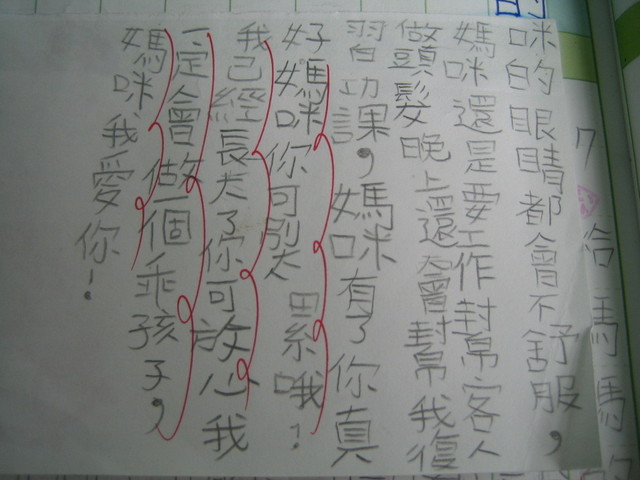 咪的眼睛都會不舒服，
媽咪還是要工作幫客人
做頭髮晚上還會幫我復
習功課，媽咪有了你真
好媽咪你可別太累哦！
我已經長大了你可放心我
一定會做一個乖孩子，
媽咪我愛你！